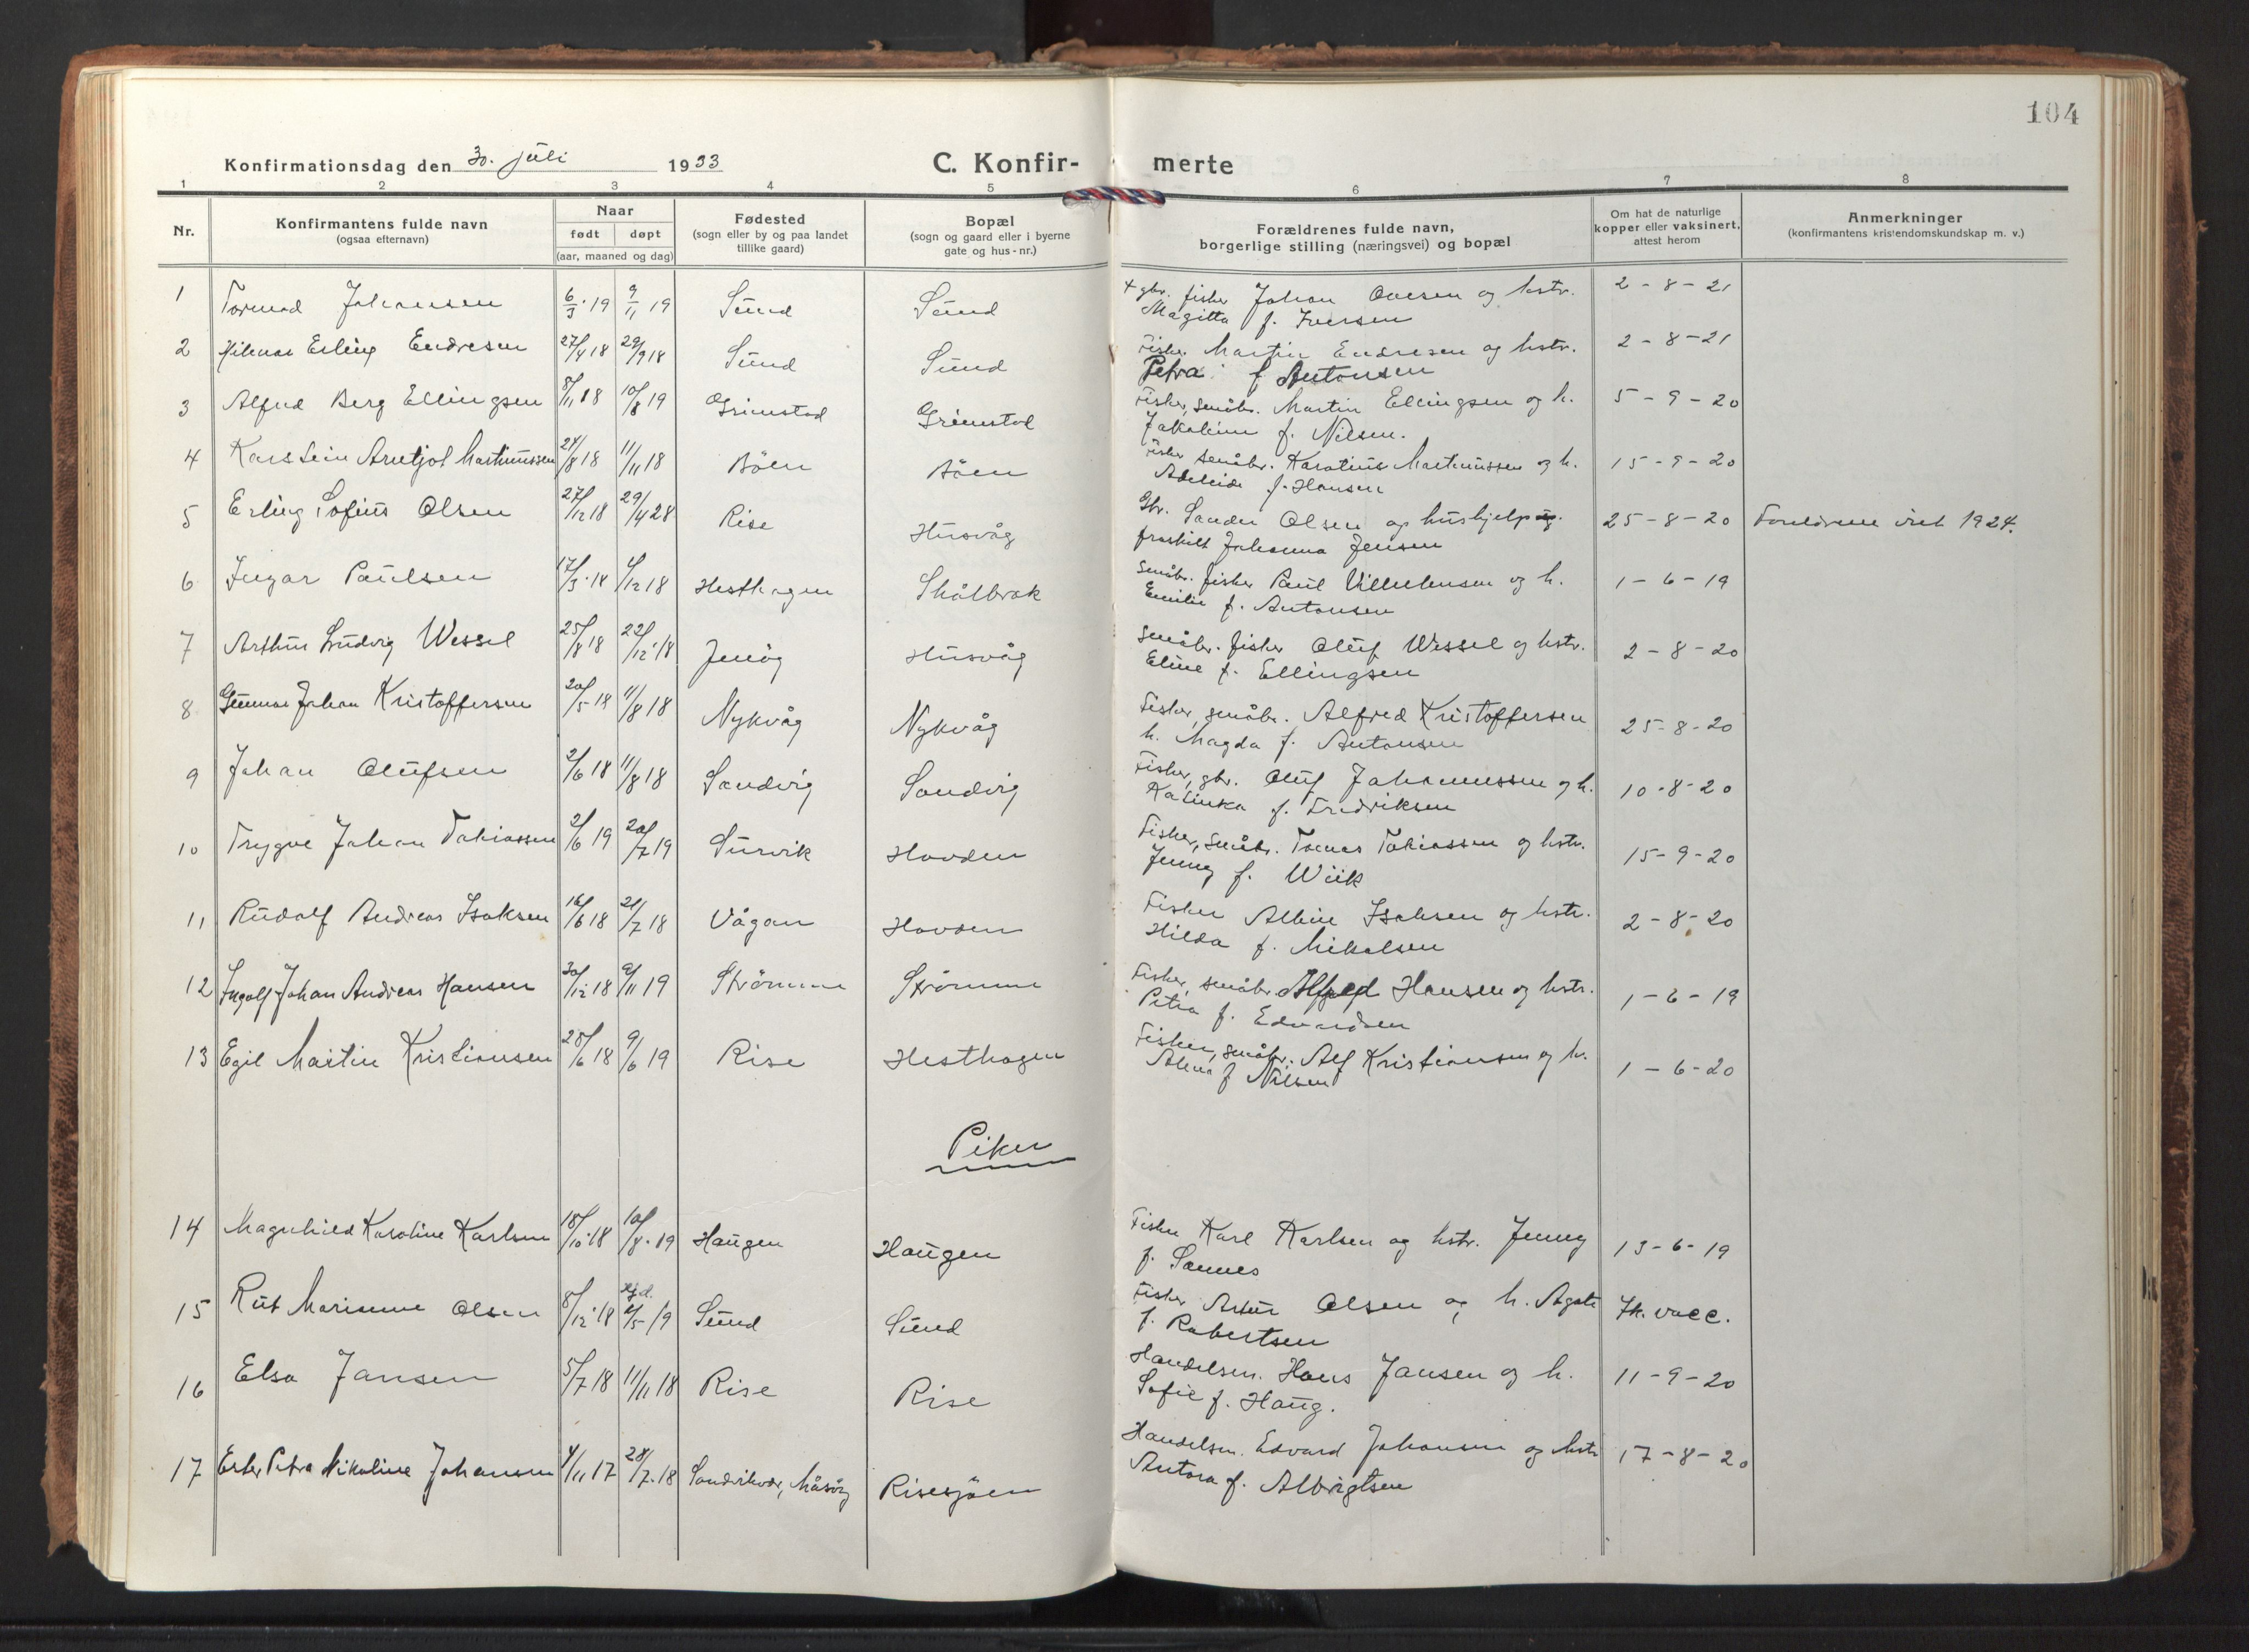 104
Konfirmationsdag den 30. juli 1933
C. Konfir- merte
1 2 3 4 5 6 7 8
Nr.
Konfirmantens fulde navn
(ogsaa efternavn)
Naar
født døpt
(aar, maaned og dag)
Fødested
(sogn eller by og paa landet
tillike gaard)
Bopæl
(sogn og gaard eller i byerne
gate og hus-nr.)
Forældrenes fulde navn,
borgerlige stilling (næringsvei) og bopæl
Om hat de naturlige
kopper eller vaksinert,
attest herom
Anmerkninger
(konfirmantens kristendomskundskap m. v.)
1 Tormod Johansen 6/3·19 9/11 19 Sund Sund + gbr. fisker Johan Ovesen og hstr. 2-8-21
Magitta f. Iversen
2 Hilmar Erling Endresen 27/4 18 29/9 18 Sund Sund Fisker Martin Endresen og hstr. 2-8-21
Petra f Antonsen
3 Alfred Berg Ellingsen 8/11 18 10/8 19 Grimstad Grimstad Fisker, småbr. Martin Ellingsen og h. 5-9-20
Jakobine f. Nilsen.
4 Karstein Arntjot Martinussen 24/8 18 11/11 18 Böen Böen Fisker småbr. Karolius Martinussen og h. 15-9-20
Adeleide f. Hansen
5 Erling Sofius Olsen 27/12 18 29/4 28 Rise Husvåg Gbr. Sander Olsen og hushjelp 25-8-20 Foreldrene viet 1924.
fraskilt Johanna Jensen
6 Ingar Paulsen 17/3·18 1/12 18 Hesthagen Skålbrak Småbr. fisker Paul Villumsen og h. 1-6-19
Emilie f. Antonsen
7 Arthur Ludvig Wessel 25/8 18 22/12·18 Jenög Husvåg Småbr. fisker Oluf Wessel og hstr. 2-8-20
Eline f. Ellingsen
8 Gunnar Johan Kristoffersen 20/5 18 11/8 18 Nykvåg Nykvåg Fisker, småbr. Alfred Kristoffersen 25-8-20
h. Magda f. Antonsen
9 Johan Olufsen 2/6 18 11/8 18 Sandvig Sandvig Fisker, gbr. Oluf Johannessen og h. 10-8-20
Katinka f. Fredriksen
10 Trygve Johan Tobiassen 2/6 19 20/7 19 Survik Hovden Fisker, småbr. Tomas Tobiassen og hstr. 15-9-20
Jenny f. Wiik
11 Rudolf Andreas Isaksen 16/6 18 21/7 18 Vågan Hovden Fisker Albin Isaksen og hstr. 2-8-20
Hilda f. Mikalsen
12 Ingolf Johan Andreas Hansen 30/12 18 9/11 19 Strömme Strömme Fisker, småbr. Alfred Hansen og hstr. 1-6-19
Petra f. Edvardsen
13 Egil Martin Kristiansen 28/6 18 9/6 19 Rise Hesthagen Fisker, småbr. Alf Kristiansen og h. 1-6-20
Alma f Nilsen
Piker
14 Magnhild Karoline Karlsen 18/10·18 10/8·19 Haugen Haugen Fisker Karl Karlsen og hstr. Jenny 13-6-19
f. Sannes
15 Rut Marianne Olsen 8/12·18 hjd. 2/5 19 Sund Sund Fisker Artur Olsen og h. Agate Ik. vacc.
f. Robertsen
16 Elsa Jansen 5/7 18 11/11 18 Rise Rise Handelsm. Hans Jansen og h. 11-9-20
Sofie f. Haug.
17 Ester Petra Nikoline Johansen 4/11 17 28/7·18 Sandvikvær, Måsöy Risesjöen Handelsm. Edvard Johansen og hstr 17-8-20
Antora f. Albrigtsen